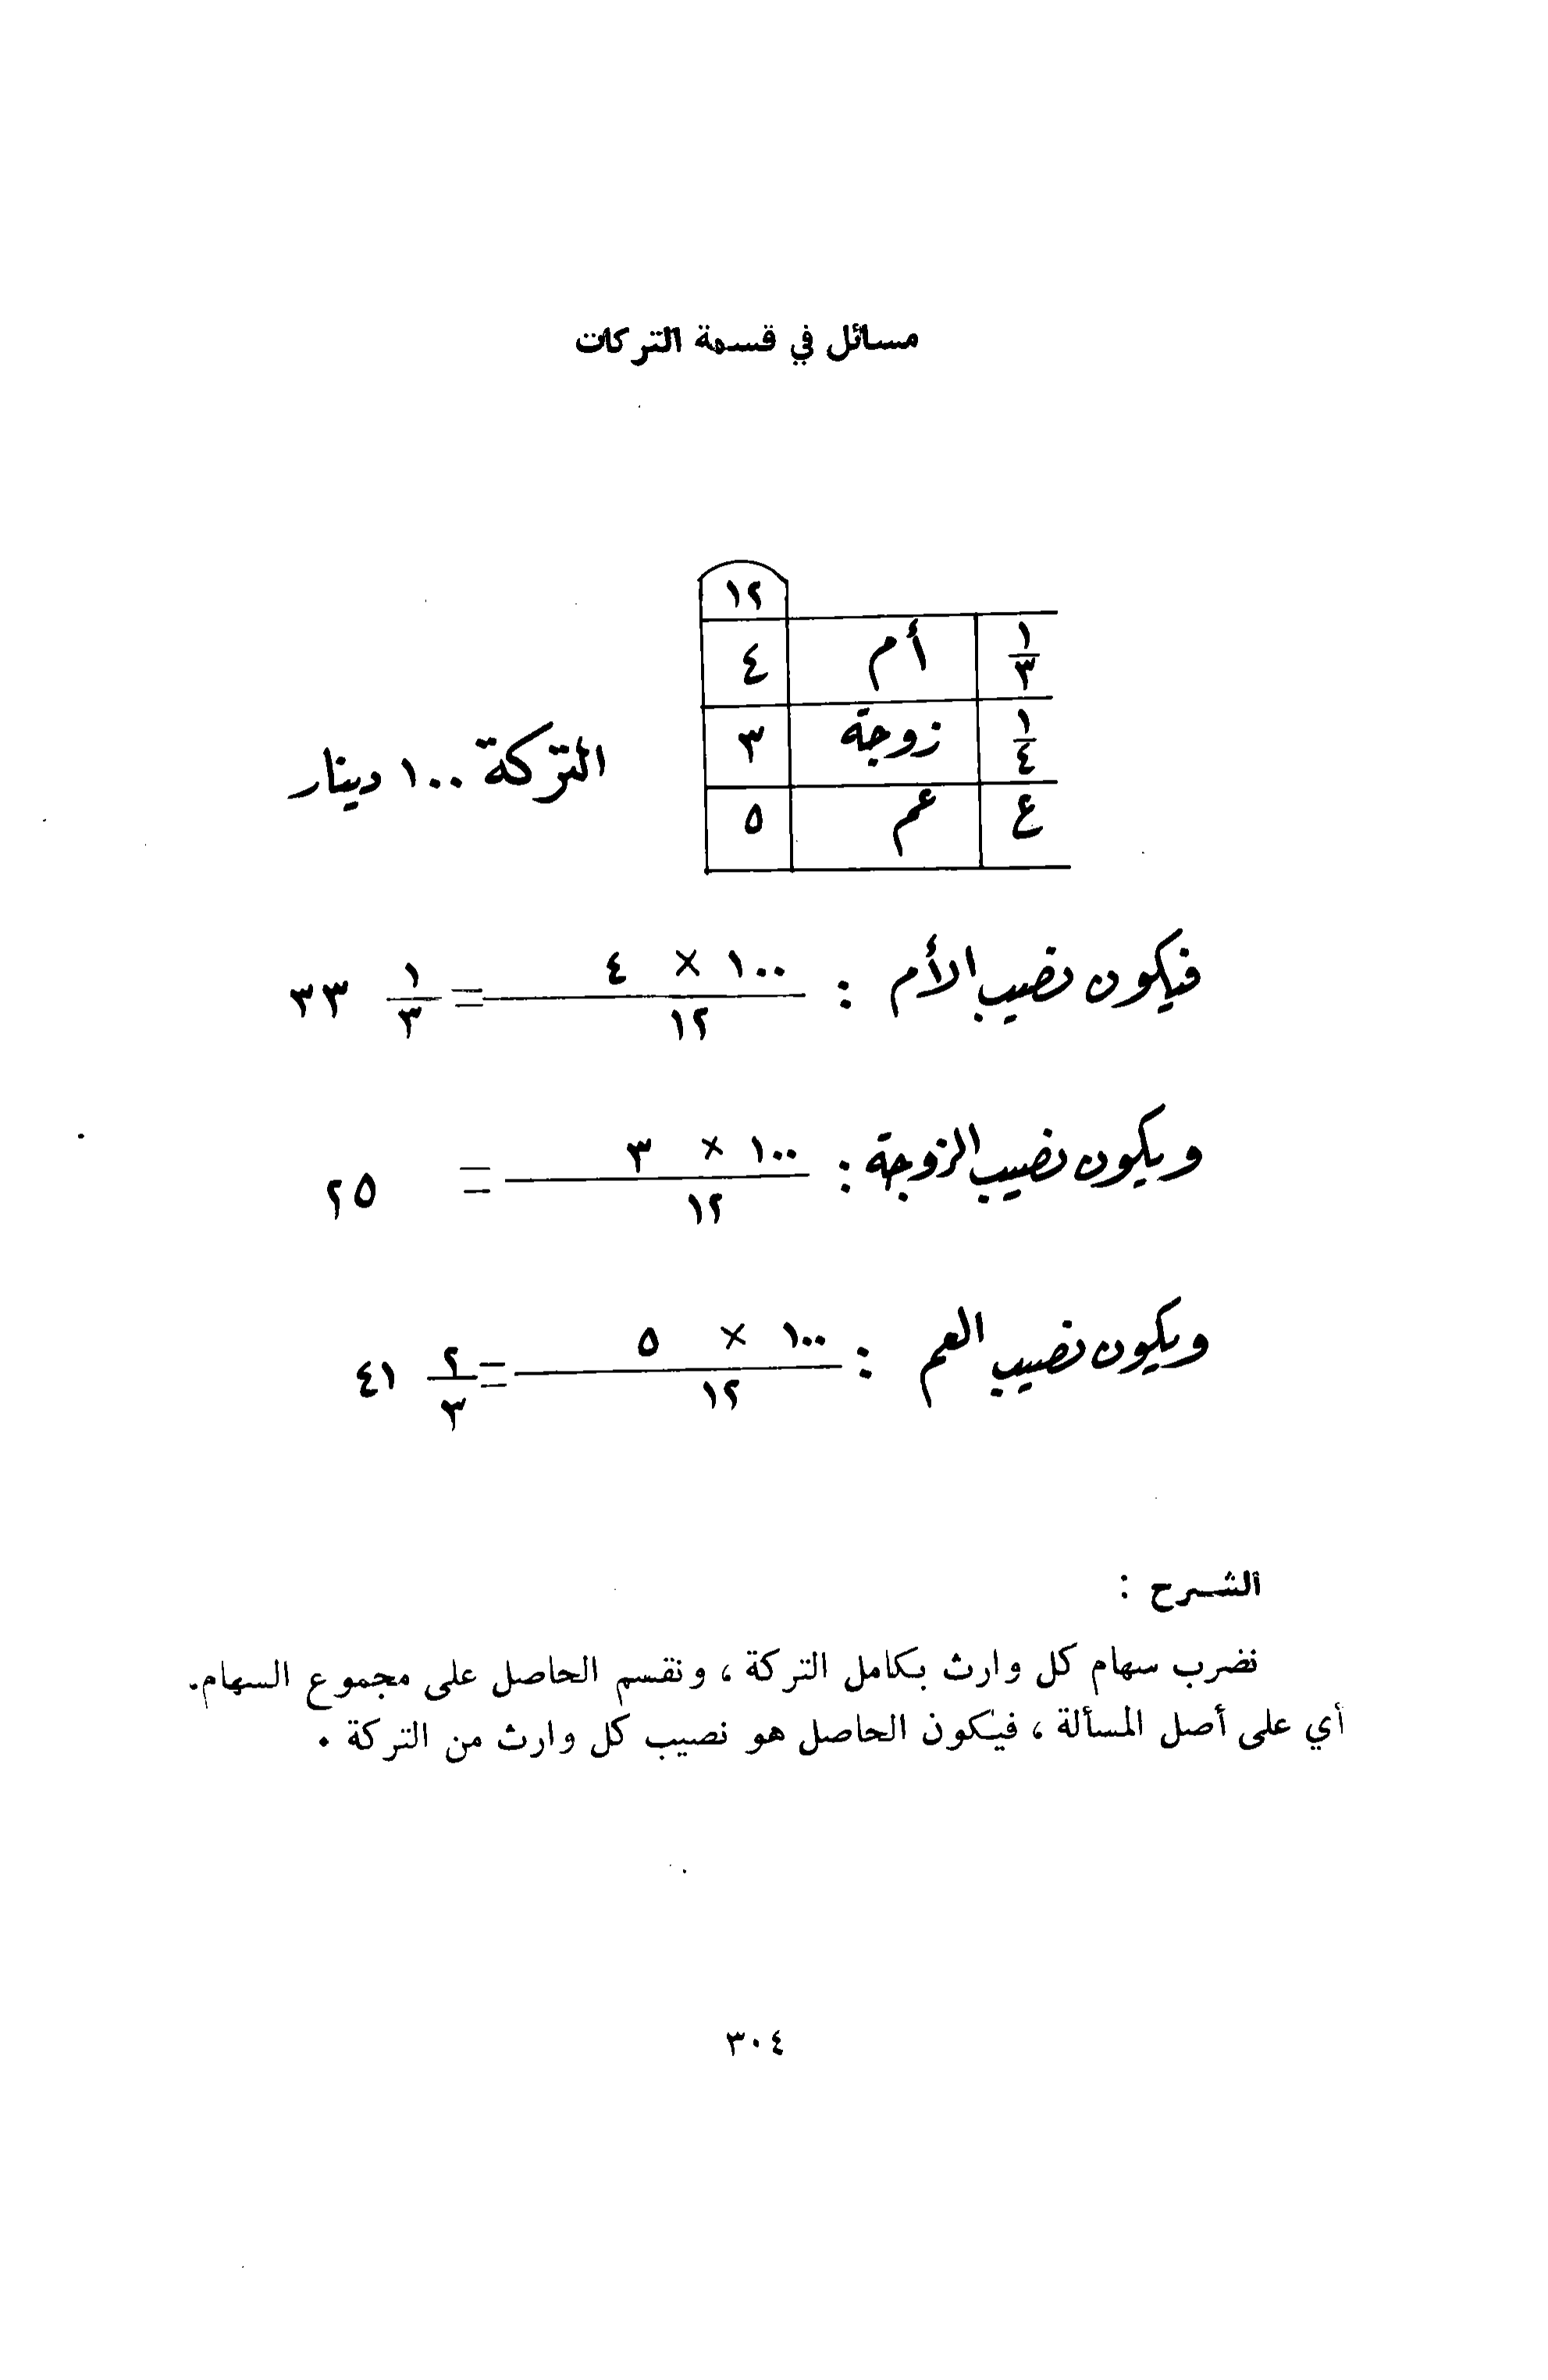 مسائل في قسمة التركات
١٢
١/٣ أم ٤
١/٤ زوجة ٣
ع عم ٥
التركة ١٠٠ دينار
فيكون نصيب الأم : ١٠٠ × ٤ / ١٢ = ١/٣ ٣٣
ويكون نصيب الزوجة : ١٠٠ × ٣ / ١٢ = ٢٥
ويكون نصيب العم : ١٠٠ × ٥ / ١٢ = ٢/٣ ٤١
الشرح :
نضرب سهام كل وارث بكامل التركة ، ونقسم الحاصل على مجموع السهام.
أي على أصل المسألة ، فيكون الحاصل هو نصيب كل وارث من التركة .
٣٠٤